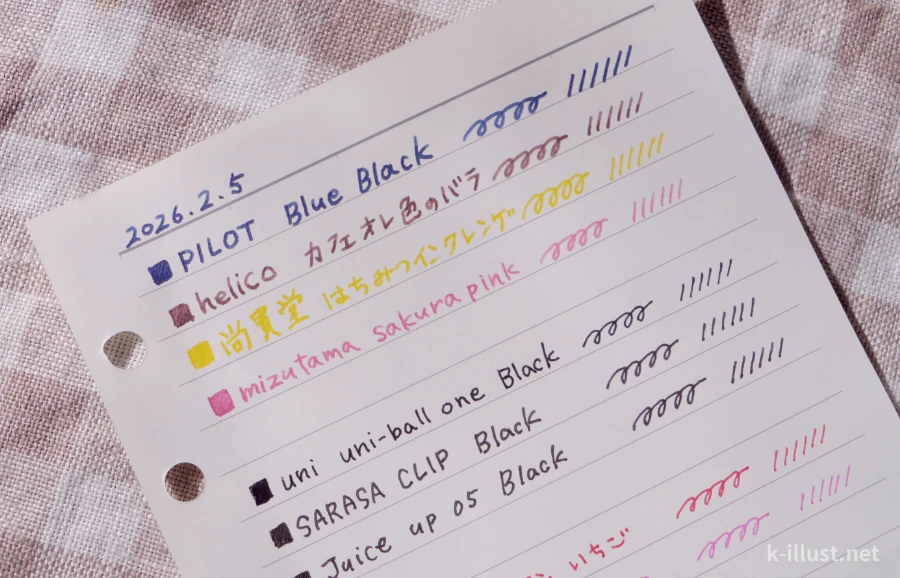 2026.2.5
PILOT Blue Black
helico カフェオレ色のバラ
尚貫堂 はちみつインクレンゲ
mizutama sakura pink
uni uni-ball one Black
SARASA CLIP Black
Juice up 05 Black
いちご
k-illust.net